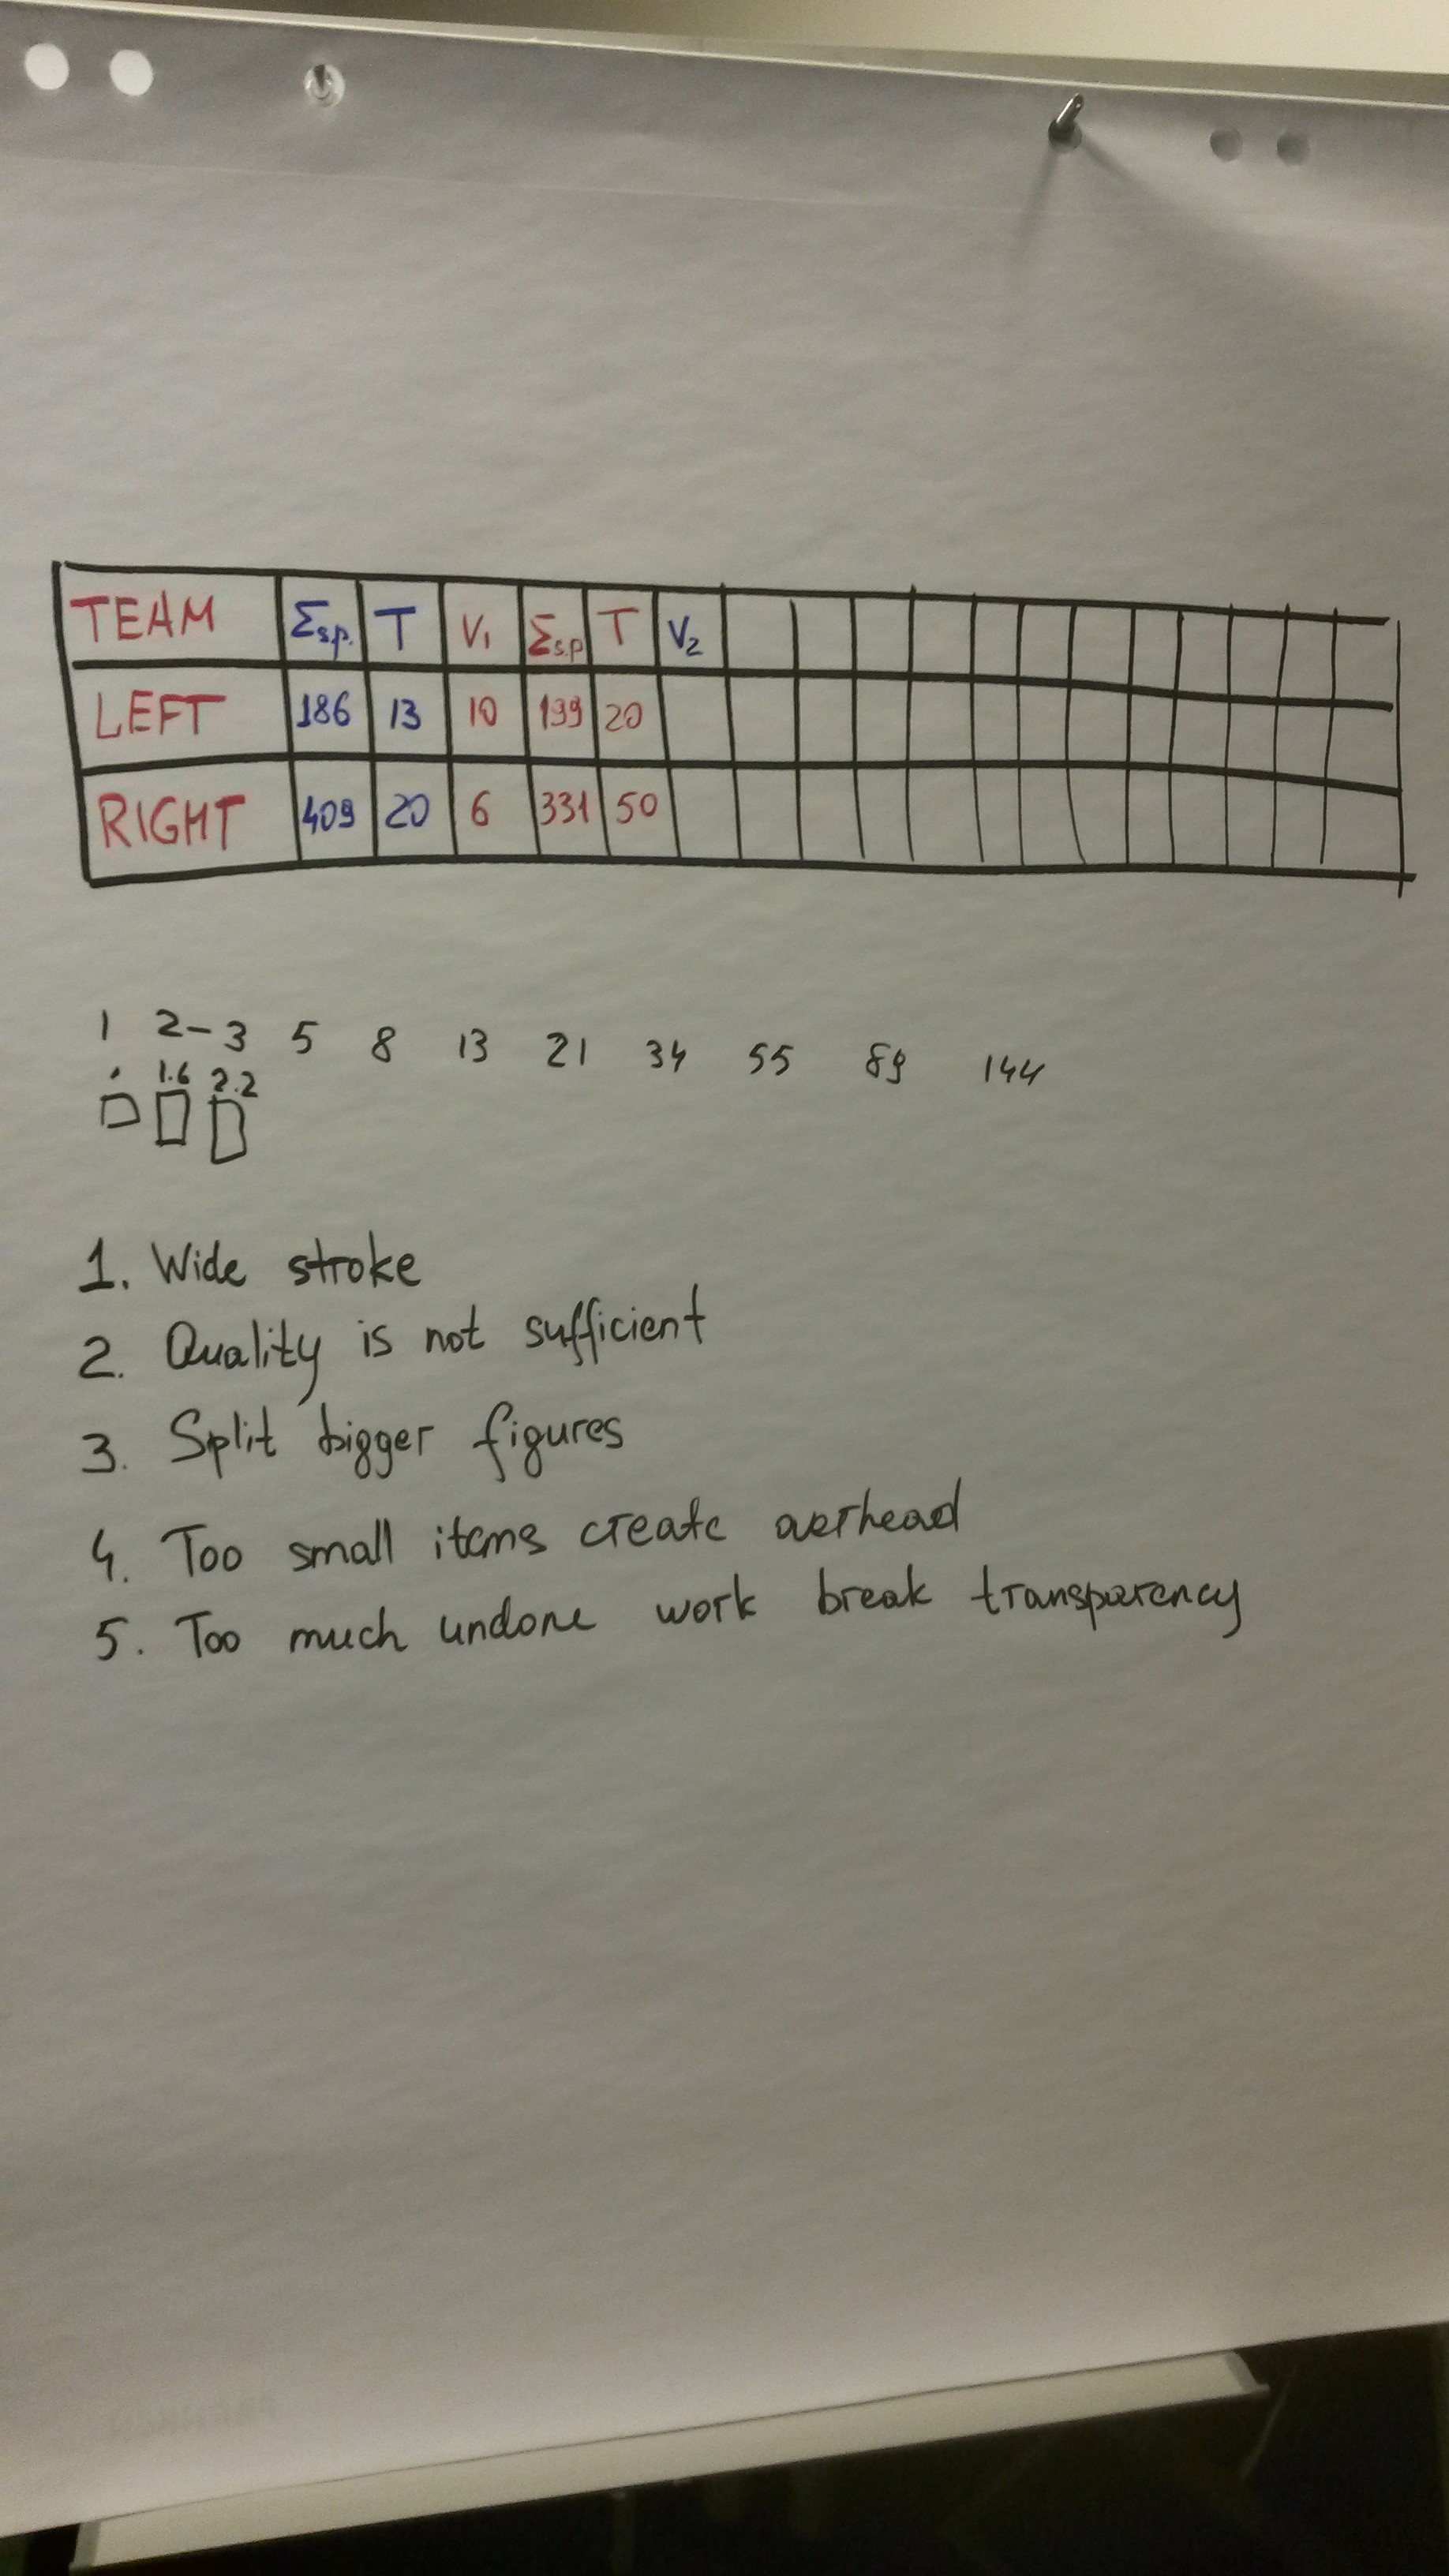 TEAM Σs.p. T V₁ Σs.p T V₂
LEFT 186 13 10 199 20
RIGHT 409 20 6 331 50
1 2-3 5 8 13 21 34 55 89 144
1.6 2.2
1. Wide stroke
2. Quality is not sufficient
3. Split bigger figures
4. Too small items create overhead
5. Too much undone work break transparency